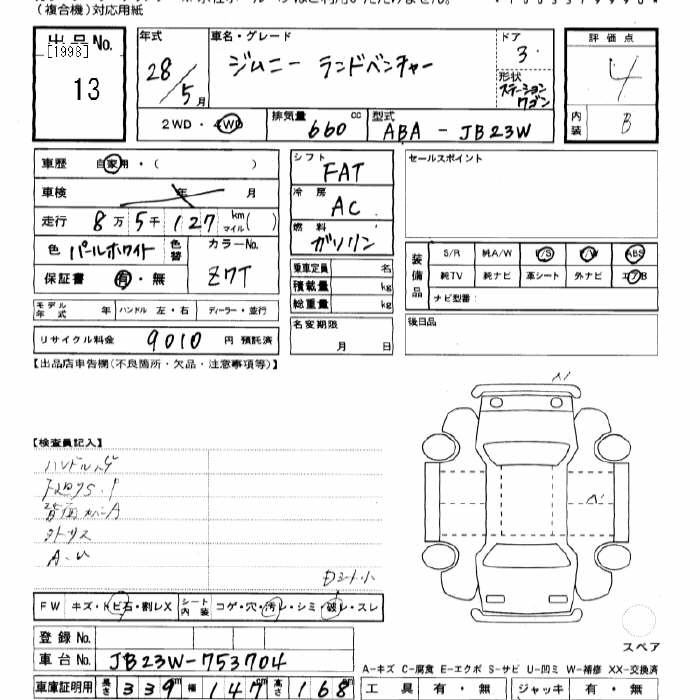 (複合機)対応用紙
出品No.
[1998]
13
年式
28/5月
車名・グレード
ジムニー ランドベンチャー
ドア
3
形状
ステーションワゴン
評価点
4
内装
B
2WD・4WD
排気量 660 cc
型式
ABA-JB23W
車歴 自家用・( )
車検 年 月
走行 8万5千127 km マイル( )
色 パールホワイト 色替
カラーNo.
Z7T
保証書 有・無
モデル年式 年 ハンドル 左・右 ディーラー・並行
リサイクル料金 9010 円 預託済
シフト
FAT
冷房
AC
燃料
ガソリン
乗車定員 名
積載量 kg
総重量 kg
名変期限
月 日
セールスポイント
装備品
S/R 純A/W P/S P/W ABS
純TV 純ナビ 革シート 外ナビ エアB
ナビ型番:
後日品
【出品店申告欄(不良箇所・欠品・注意事項等)】
【検査員記入】
A-U
Dシート小
FW キズ・トビ石・割レX シート内装 コゲ・穴・汚レ・シミ・破レ・スレ
登録No.
車台No. JB23W-753704
車庫証明用 長さ 339cm 幅 147cm 高さ 168cm
スペア
A-キズ C-腐食 E-エクボ S-サビ U-凹ミ W-補修 XX-交換済
工具 有・無 ジャッキ 有・無